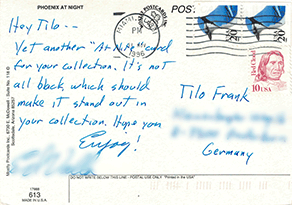 PHOENIX AT NIGHT
Hey Tilo --
Yet another "At Night" card
for your collection. It's not
all black, which should
make it stand out in
your collection. Hope you
Enjoy!
POSTCARDS
PM
1996
20
20
Red Cloud
10 USA
Tilo Frank
Germany
DO NOT WRITE BELOW THIS LINE - POSTAL USE ONLY
*Printed in the USA*
613
MADE IN U.S.A.